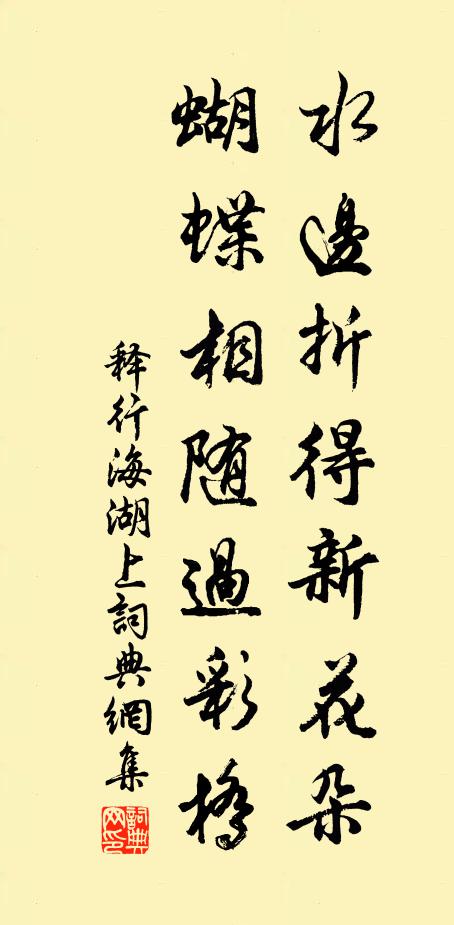 水邊折得新花朵
蝴蝶相随過彩橋
释行海湖上詞典網集
詞典网印